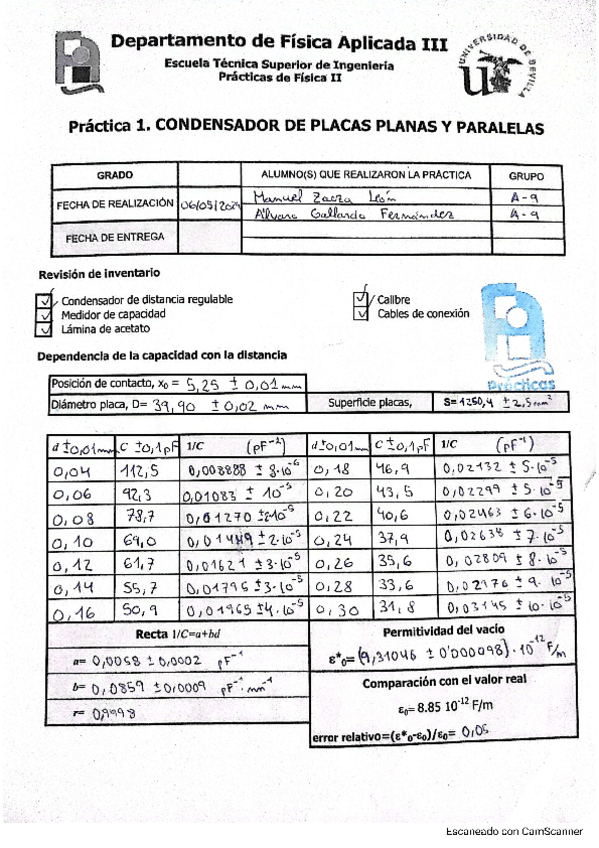 Departamento de Física Aplicada III
Escuela Técnica Superior de Ingeniería
Prácticas de Física II
UNIVERSIDAD DE SEVILLA
Práctica 1. CONDENSADOR DE PLACAS PLANAS Y PARALELAS
GRADO ALUMNO(S) QUE REALIZARON LA PRÁCTICA GRUPO
FECHA DE REALIZACIÓN 06/05/2024 Manuel Zarza León A-9
Álvaro Gallardo Fernández A-9
FECHA DE ENTREGA
Revisión de inventario
Condensador de distancia regulable Calibre
Medidor de capacidad Cables de conexión
Lámina de acetato
Prácticas
Dependencia de la capacidad con la distancia
Posición de contacto, x₀ = 5,25 ± 0,01 mm
Diámetro placa, D= 39,90 ± 0,02 mm Superficie placas, S= 1250,4 ± 2,5 mm²
d ±0,01mm C ±0,1pF 1/C (pF⁻¹) d ±0,01mm C ±0,1pF 1/C (pF⁻¹)
0,04 112,5 0,008888 ± 8·10⁻⁶ 0,18 46,9 0,02132 ± 5·10⁻⁵
0,06 92,3 0,01083 ± 10⁻⁵ 0,20 43,5 0,02299 ± 5·10⁻⁵
0,08 78,7 0,01270 ±2·10⁻⁵ 0,22 40,6 0,02463 ± 6·10⁻⁵
0,10 69,0 0,01449 ±2·10⁻⁵ 0,24 37,9 0,02638 ± 7·10⁻⁵
0,12 61,7 0,01621 ±3·10⁻⁵ 0,26 35,6 0,02809 ± 8·10⁻⁵
0,14 55,7 0,01795 ±3·10⁻⁵ 0,28 33,6 0,02976 ± 9·10⁻⁵
0,16 50,9 0,01965 ±4·10⁻⁵ 0,30 31,8 0,03145 ± 10·10⁻⁵
Recta 1/C=a+bd
a= 0,0058 ± 0,0002 pF⁻¹
b= 0,0859 ± 0,0009 pF⁻¹·mm⁻¹
r= 0,9998
Permitividad del vacío
ε*₀= (9,31046 ± 0'000098)·10⁻¹² F/m
Comparación con el valor real
ε₀= 8.85 10⁻¹² F/m
error relativo=(ε*₀-ε₀)/ε₀= 0,05
Escaneado con CamScanner